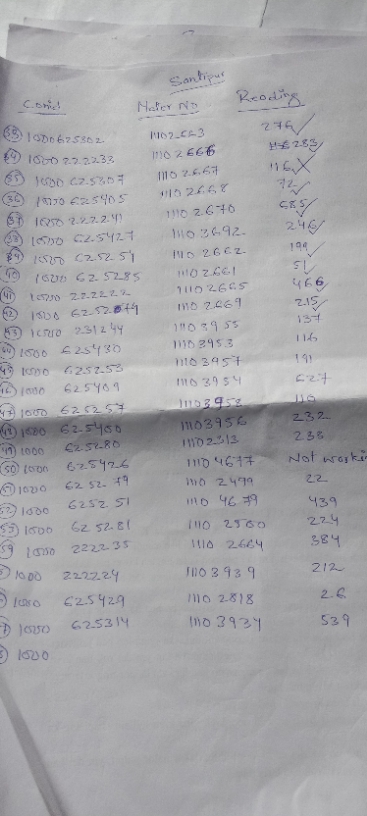 Santipur
Conid Meter No Reading
33 1000625302 11102663 276
34 1000 222233 11102666 283
35 1000 625307 11102667 116
36 1000 625405 11102668 72
37 1000 222241 11102670 685
38 1000 625427 11103692 246
39 1000 625254 11102662 199
40 1000 625285 11102661 51
41 1000 222222 11102665 466
42 1000 11102669 215
43 1000 231244 11103955 137
1000 625430 11103953 116
45 1000 625253 11103957 191
1000 625409 11103954 627
47 1000 625257 110
48 1000 625400 11103956 232
49 1000 625280 238
50 1000 625426 11104677 Not
51 1000 625279 11102499 22
52 1000 625251 11104679 439
53 1000 625281 11102500 224
1000 222235 11102664 384
1000 222224 11103939 212
1000 625429 11102818 26
1000 625314 11103937 539
1000